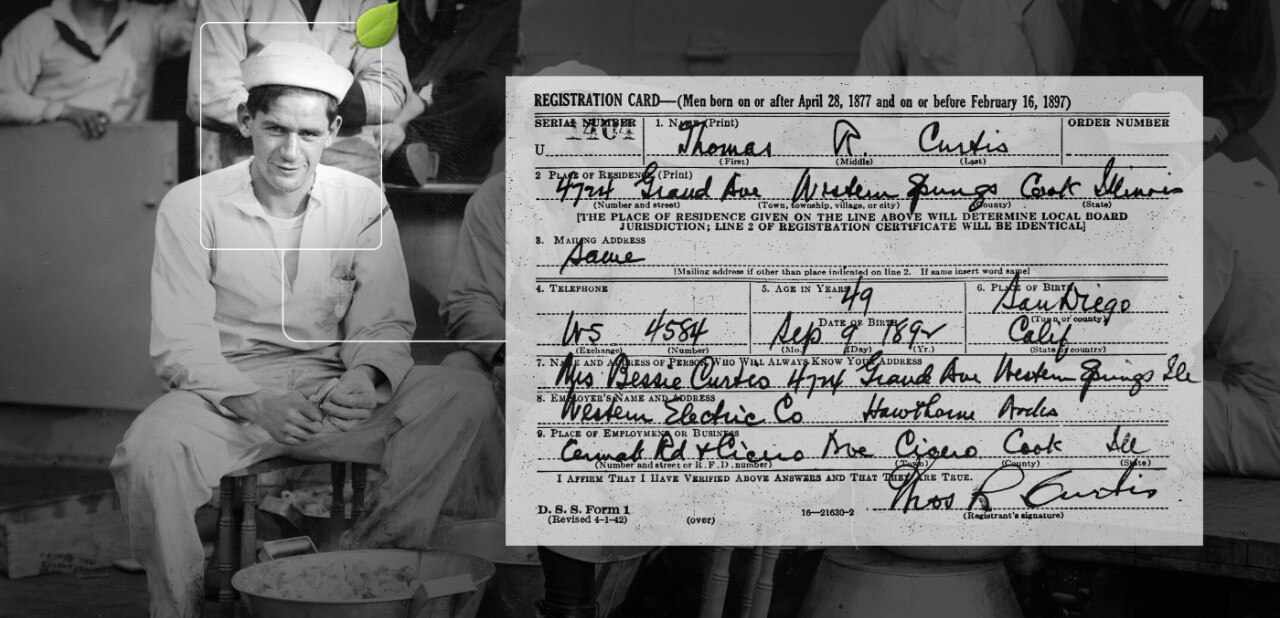 REGISTRATION CARD—(Men born on or after April 28, 1877 and on or before February 16, 1897)
SERIAL NUMBER 1. NAME (Print) ORDER NUMBER
1404
U Thomas R. Curtis
(First) (Middle) (Last)
2 PLACE OF RESIDENCE (Print)
4724 Grand Ave Western Springs Cook Illinois
(Number and street) (Town, township, village, or city) (County) (State)
[THE PLACE OF RESIDENCE GIVEN ON THE LINE ABOVE WILL DETERMINE LOCAL BOARD
JURISDICTION; LINE 2 OF REGISTRATION CERTIFICATE WILL BE IDENTICAL]
3. MAILING ADDRESS
Same
[Mailing address if other than place indicated on line 2. If same insert word same]
4. TELEPHONE 5. AGE IN YEARS 6. PLACE OF BIRTH
49 San Diego
DATE OF BIRTH (Town or county)
WS 4584 Sep 9 1892 Calif
(Exchange) (Number) (Mo.) (Day) (Yr.) (State or country)
7. NAME AND ADDRESS OF PERSON WHO WILL ALWAYS KNOW YOUR ADDRESS
Mrs Bessie Curtis 4724 Grand Ave Western Springs Ill
8. EMPLOYER'S NAME AND ADDRESS
Western Electric Co Hawthorne Works
9. PLACE OF EMPLOYMENT OR BUSINESS
Cermak Rd & Cicero Ave Cicero Cook Ill
(Number and street or R. F. D. number) (Town) (County) (State)
I AFFIRM THAT I HAVE VERIFIED ABOVE ANSWERS AND THAT THEY ARE TRUE.
Thos R Curtis
D. S. S. Form 1
(Revised 4-1-42) (over) 16—21630-2 (Registrant's signature)